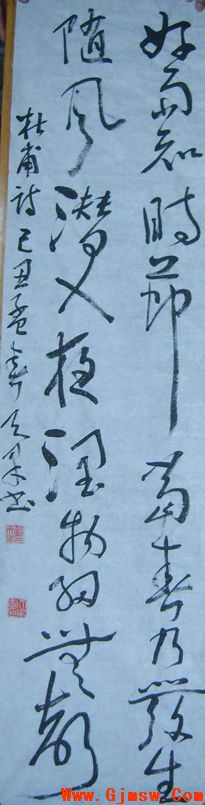 好雨知時節當春乃發生
隨風潛入夜潤物細無聲
杜甫詩己丑孟春天书
www.Gjmsw.com